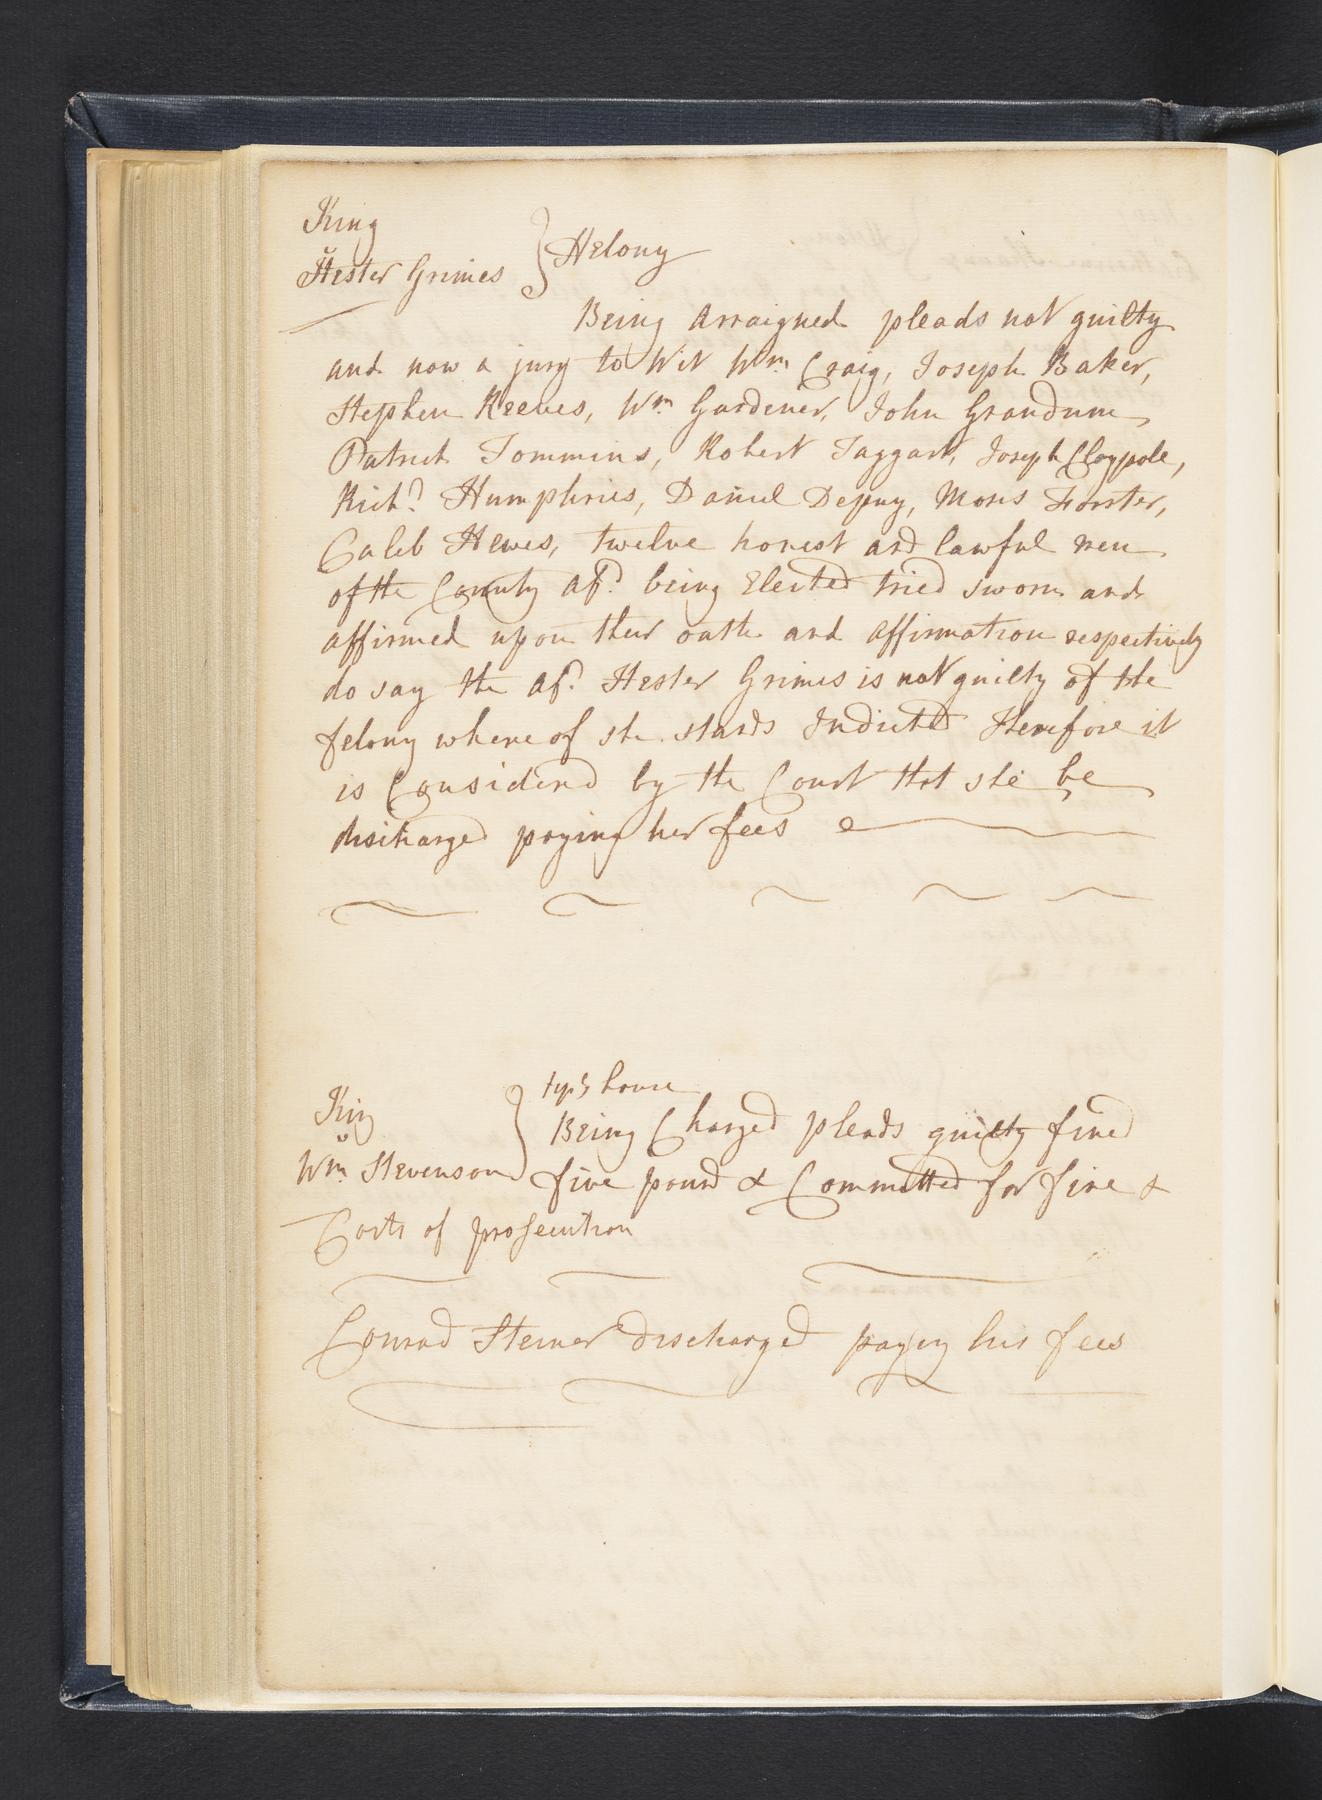 King
v
Hester Grimes } Felony
Being Arraigned pleads not guilty
and now a jury to Wit Wm Craig, Joseph Baker,
Stephen Reeves, Wm Gardener, John Grandum,
Patrick Tommins, Robert Taggart, Joseph Claypole,
Richd Humphries, Daniel Depuy, Moses Forster,
Caleb Hewes, twelve honest and lawful men
of the County afd being Elected tried sworn and
affirmed upon their oath and affirmation respectively
do say the afd Hester Grimes is not guilty of the
felony where of she stands Indicted Therefore it
is Considered by the Court that she be
discharged paying her fees
King
v
Wm Stevenson } house
Being Charged pleads guilty fined
five pound & Committed for fine &
Costs of prosecution
Conrad Steiner discharged paying his fees